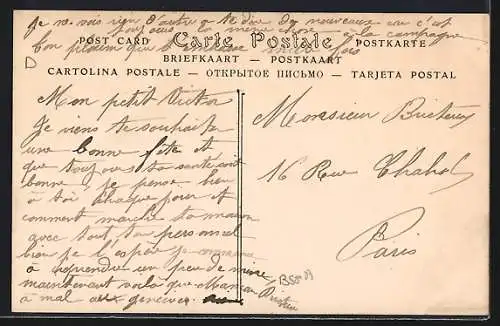 je ne vois rien d'autre a te dire de nouveau car c'est
toujours la même chose à la campagne
POST CARD Carte Postale POSTKARTE
BRIEFKAART — POSTKAART
CARTOLINA POSTALE — ОТКРЫТОЕ ПИСЬМО — TARJETA POSTAL
D
Mon petit Victor
Je viens te souhaiter
une bonne fête et
que toujours ta santé soit
bonne, je pense bien
à toi chaque jour et
comment marche ta maison
avec tout ton personnel
bien je l'espère je commence
à apprendre un peu de
maintenant voilà que Maman
a mal aux genoux
Monsieur
16 Rue Chabrol
Paris